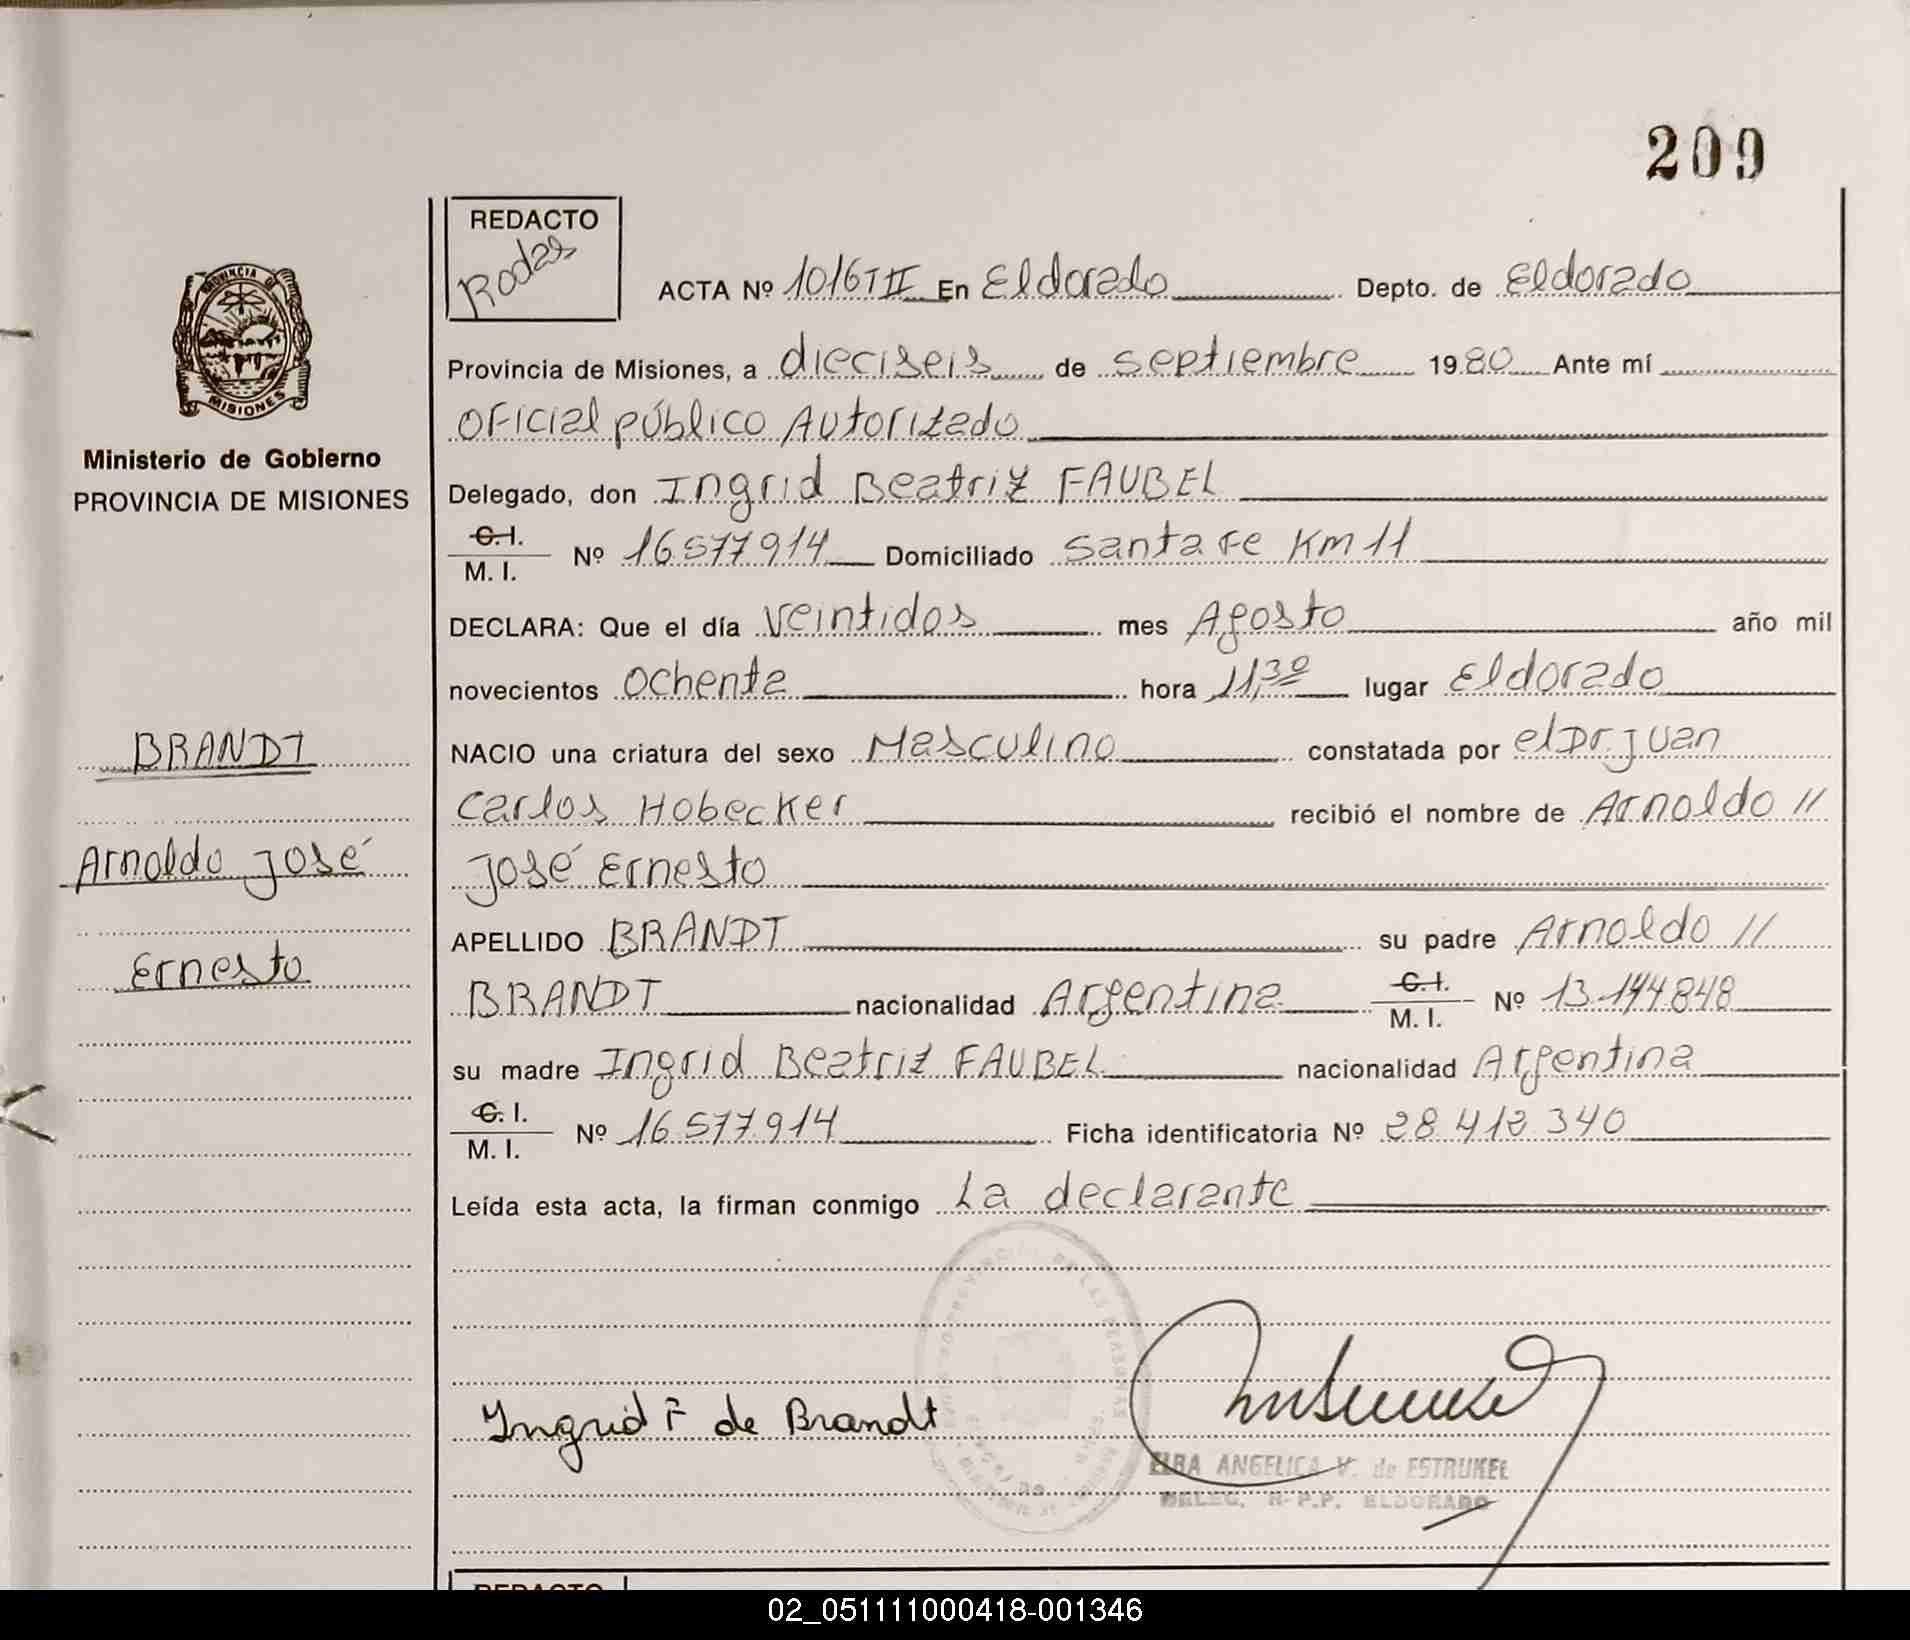 209
REDACTO
Rodas
ACTA Nº 1016 T II En Eldorado Depto. de Eldorado
PROVINCIA DE
MISIONES
Ministerio de Gobierno
PROVINCIA DE MISIONES
Provincia de Misiones, a dieciseis de septiembre 1980 Ante mí
oficial público Autorizado
Delegado, don Ingrid Beatriz FAUBEL
C. I.
M. I. Nº 16.577.914 Domiciliado Santa Fe Km 11
DECLARA: Que el día veintidos mes Agosto año mil
novecientos ochenta hora 11,30 lugar Eldorado
NACIO una criatura del sexo Masculino constatada por el Dr. Juan
Carlos Hobecker recibió el nombre de Arnoldo //
José Ernesto
APELLIDO BRANDT su padre Arnoldo //
BRANDT nacionalidad Argentina C. I. M. I. Nº 13.144.848
su madre Ingrid Beatriz FAUBEL nacionalidad Argentina
C. I.
M. I. Nº 16.577.914 Ficha identificatoria Nº 28.412.340
Leída esta acta, la firman conmigo La declarante
BRANDT
Arnoldo José
Ernesto
Ingrid F de Brandt
ELBA ANGELICA V. de ESTRUKEL
DELEG. R.P.P. ELDORADO
REDACTO
02_051111000418-001346